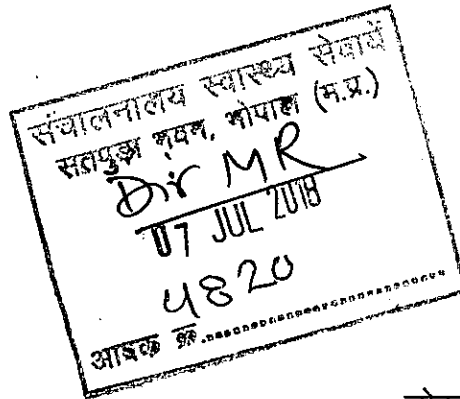 संचालनालय स्वास्थ्य सेवायें
सतपुड़ा भवन, भोपाल (म.प्र.)
Dir MR
07 JUL 2018
4820
आवक क्र.....................